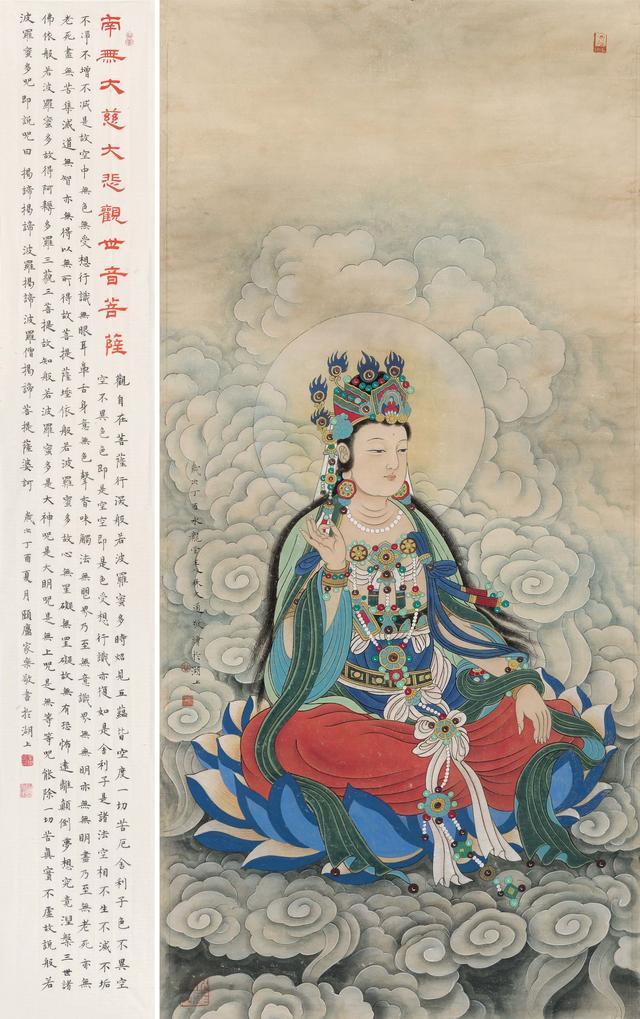 南無大慈大悲觀世音菩薩
觀自在菩薩行深般若波羅蜜多時照見五蘊皆空度一切苦厄舍利子色不異空
空不異色色即是空空即是色受想行識亦復如是舍利子是諸法空相不生不滅不垢
不淨不增不減是故空中無色無受想行識無眼耳鼻舌身意無色聲香味觸法無眼界乃至無意識界無無明亦無無明盡乃至無老死亦無
老死盡無苦集滅道無智亦無得以無所得故菩提薩埵依般若波羅蜜多故心無罣礙無罣礙故無有恐怖遠離顛倒夢想究竟涅槃三世諸
佛依般若波羅蜜多故得阿耨多羅三藐三菩提故知般若波羅蜜多是大神呪是大明呪是無上呪是無等等呪能除一切苦真實不虛故說般若
波羅蜜多呪即說呪曰 揭諦揭諦 波羅揭諦 波羅僧揭諦 菩提薩婆訶 歲次丁酉夏月 頤廬家樂敬書於湖上
歲次丁酉 敬繪於湖上